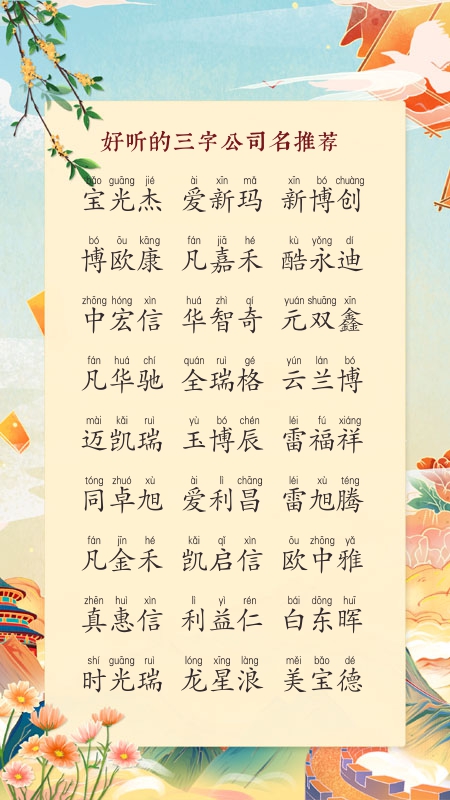 好听的三字公司名推荐
bǎo guāng jié ài xīn mǎ xīn bó chuàng
宝光杰 爱新玛 新博创
bó ōu kāng fán jiā hé kù yǒng dí
博欧康 凡嘉禾 酷永迪
zhōng hóng xìn huá zhì qí yuán shuāng xīn
中宏信 华智奇 元双鑫
fán huá chí quán ruì gé yún lán bó
凡华驰 全瑞格 云兰博
mài kǎi ruì yù bó chén léi fú xiáng
迈凯瑞 玉博辰 雷福祥
tóng zhuó xù ài lì chāng léi xù téng
同卓旭 爱利昌 雷旭腾
fán jīn hé kǎi qǐ xìn ōu zhōng yǎ
凡金禾 凯启信 欧中雅
zhēn huì xìn lì yì rén bái dōng huī
真惠信 利益仁 白东晖
shí guāng ruì lóng xīng làng měi bǎo dé
时光瑞 龙星浪 美宝德